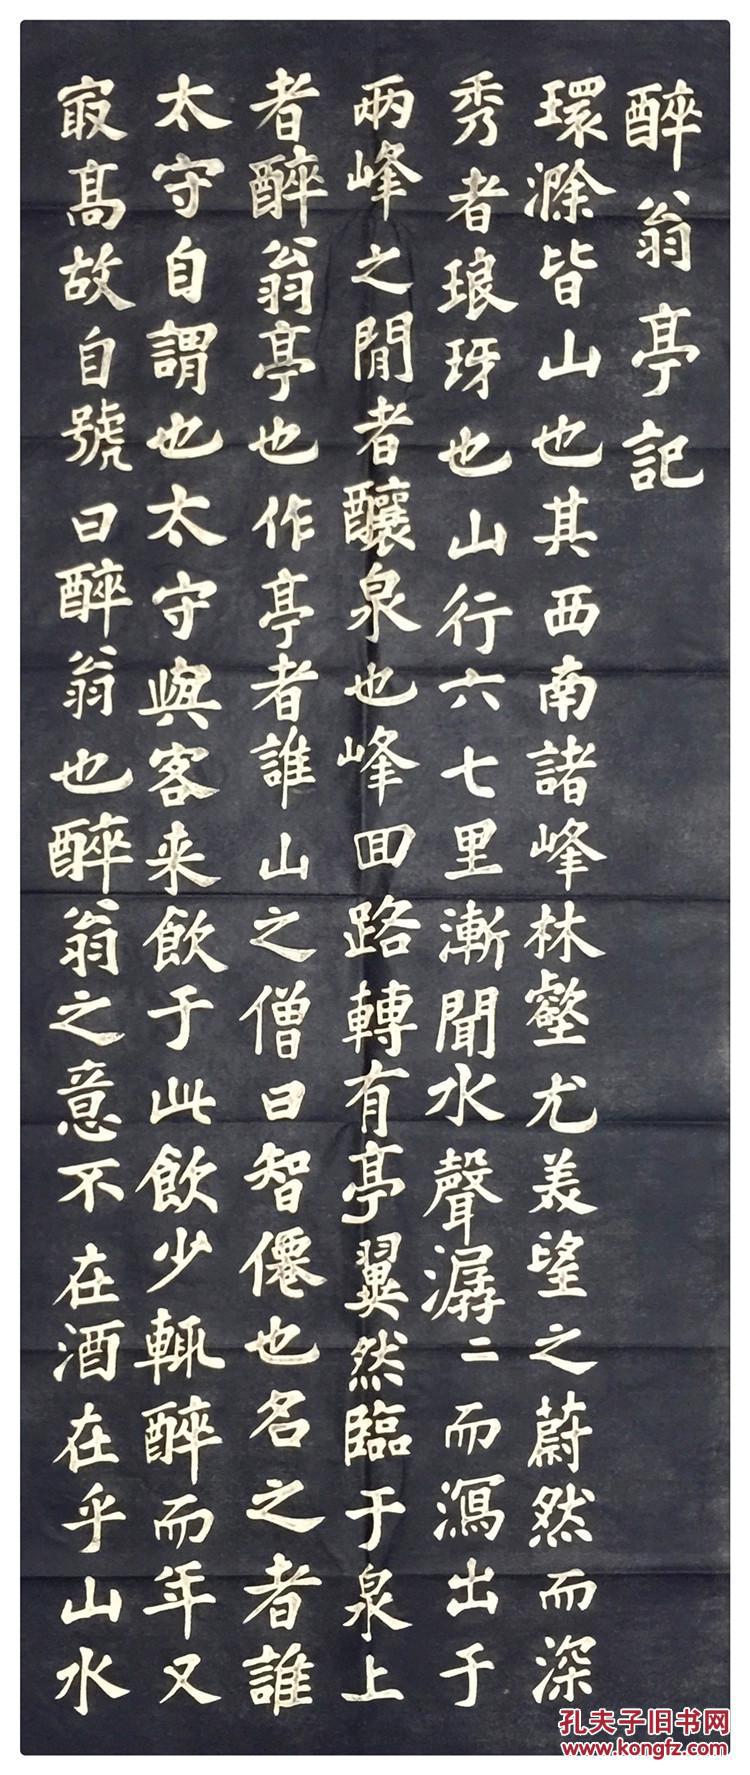 醉翁亭記
環滁皆山也其西南諸峰林壑尤美望之蔚然而深
秀者琅玡也山行六七里漸聞水聲潺二而瀉出于
兩峰之閒者釀泉也峰回路轉有亭翼然臨于泉上
者醉翁亭也作亭者誰山之僧曰智僊也名之者誰
太守自謂也太守與客来飲于此飲少輒醉而年又
冣髙故自號曰醉翁也醉翁之意不在酒在乎山水
孔夫子旧书网
www.kongfz.com